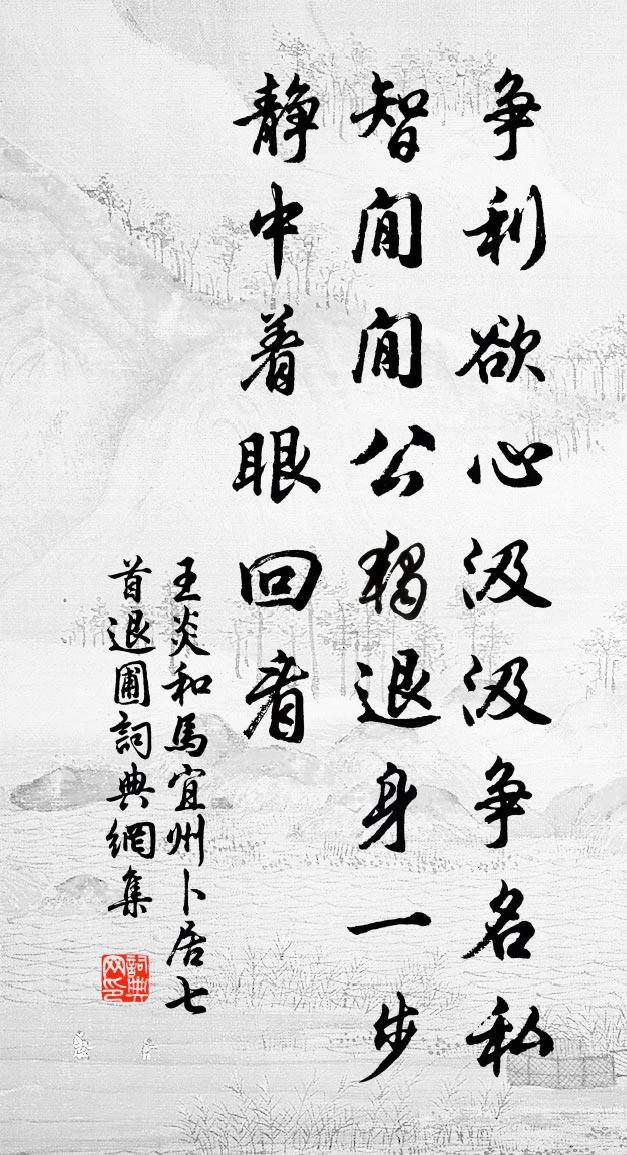 争利欲心汲汲争名私
智閒閒公獨退身一步
静中着眼回看
王炎和馬宜州卜居七
首退圃詞典網集
詞典网印